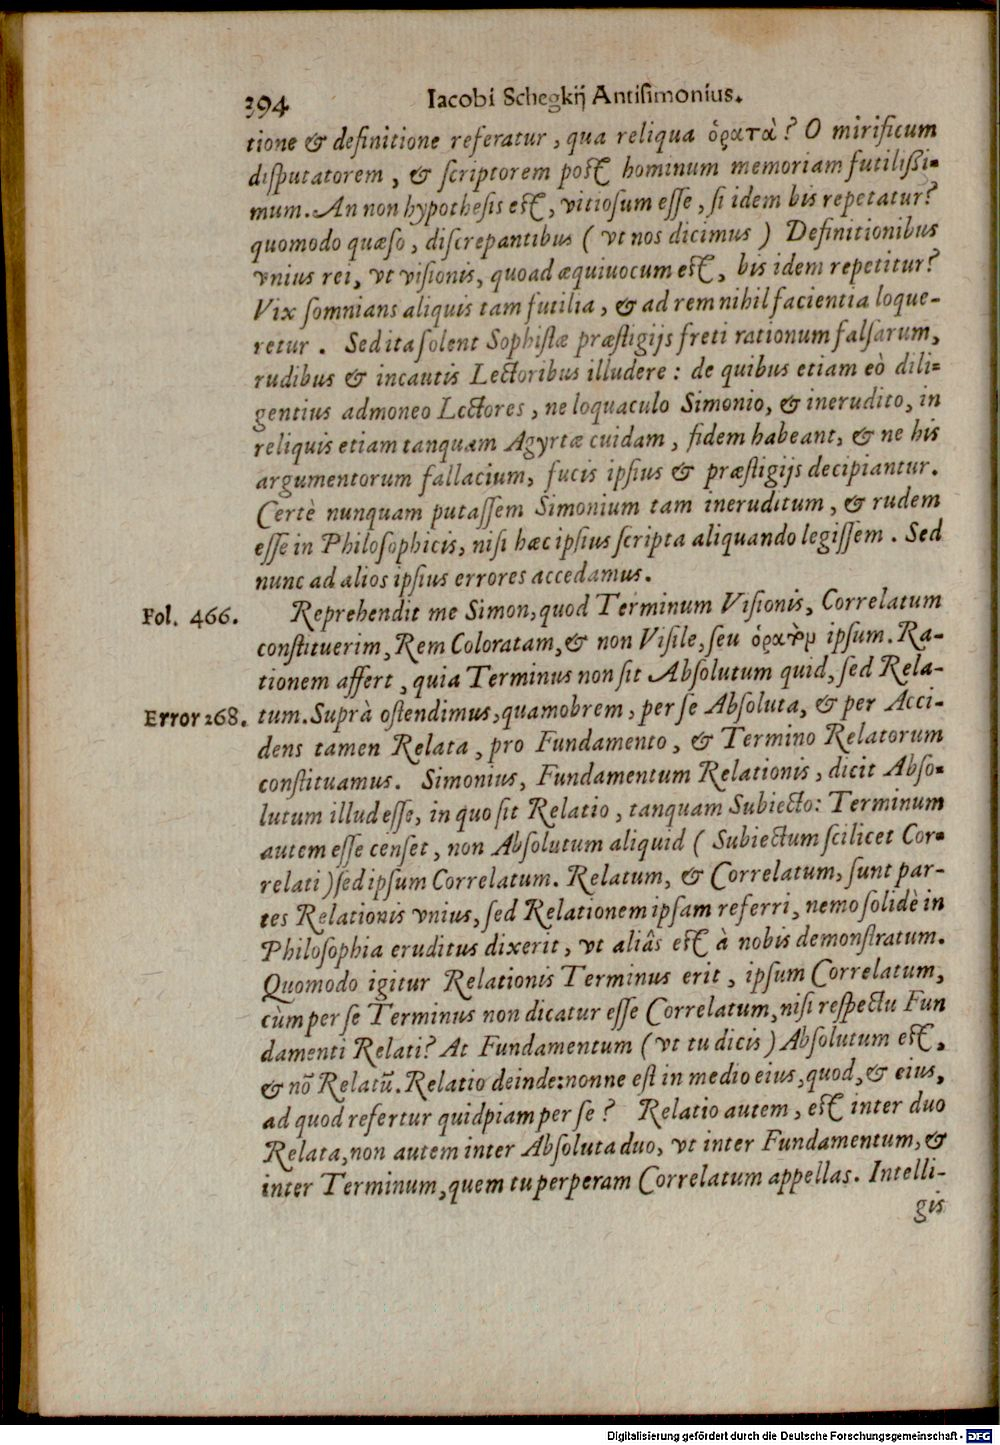 394
Iacobi Schegkij Antisimonius.
tione & definitione referatur, qua reliqua ὁρατὰ? O mirificum
disputatorem, & scriptorem post hominum memoriam futilißi-
mum. An non hypothesis est, vitiosum esse, si idem bis repetatur?
quomodo quæso, discrepantibus (vt nos dicimus) Definitionibus
vnius rei, vt visionis, quoad æquiuocum est, bis idem repetitur?
Vix somnians aliquis tam futilia, & ad rem nihil facientia loque-
retur. Sed ita solent Sophistæ præstigijs freti rationum falsarum,
rudibus & incautis Lectoribus illudere: de quibus etiam eò dili-
gentius admoneo Lectores, ne loquaculo Simonio, & inerudito, in
reliquis etiam tanquam Agyrtæ cuidam, fidem habeant, & ne his
argumentorum fallacium, fucis ipsius & præstigijs decipiantur.
Certè nunquam putassem Simonium tam ineruditum, & rudem
esse in Philosophicis, nisi hæc ipsius scripta aliquando legissem. Sed
nunc ad alios ipsius errores accedamus.
Fol. 466.
Reprehendit me Simon, quod Terminum Visionis, Correlatum
constituerim, Rem Coloratam, & non Visile, seu ipsum. Ra-
tionem affert, quia Terminus non sit Absolutum quid, sed Rela-
Error 268.
tum. Suprà ostendimus, quamobrem, per se Absoluta, & per Acci-
dens tamen Relata, pro Fundamento, & Termino Relatorum
constituamus. Simonius, Fundamentum Relationis, dicit Abso-
lutum illud esse, in quo sit Relatio, tanquam Subiecto: Terminum
autem esse censet, non Absolutum aliquid (Subiectum scilicet Cor-
relati) sed ipsum Correlatum. Relatum, & Correlatum, sunt par-
tes Relationis vnius, sed Relationem ipsam referri, nemo solidè in
Philosophia eruditus dixerit, vt aliâs est à nobis demonstratum.
Quomodo igitur Relationis Terminus erit, ipsum Correlatum,
cùm per se Terminus non dicatur esse Correlatum, nisi respectu Fun
damenti Relati? At Fundamentum (vt tu dicis) Absolutum est,
& nõ Relatũ. Relatio deinde: nonne est in medio eius, quod, & eius,
ad quod refertur quidpiam per se? Relatio autem, est inter duo
Relata, non autem inter Absoluta duo, vt inter Fundamentum, &
inter Terminum, quem tu perperam Correlatum appellas. Intelli-
gis
Digitalisierung gefördert durch die Deutsche Forschungsgemeinschaft - DFG